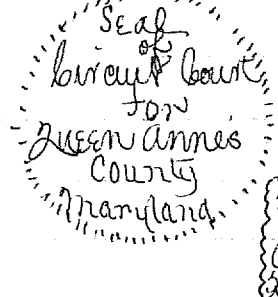 Seal
of
Circuit Court
For
Queen Anne's
County
Maryland.